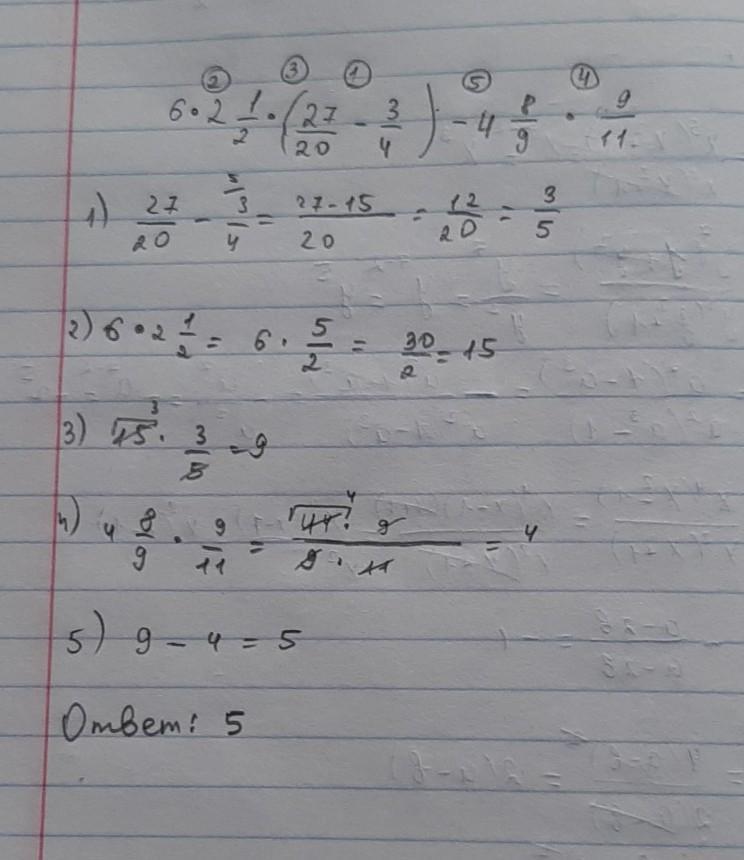 ② ③ ① ⑤ ④
6 · 2 1/2 · (27/20 - 3/4) - 4 8/9 · 9/11
1) 27/20 - 3/4 ⁵ = 27-15/20 = 12/20 = 3/5
2) 6 · 2 1/2 = 6 · 5/2 = 30/2 = 15
3) 15 ³ · 3/5 = 9
4) 4 8/9 · 9/11 = 44 ⁴ · 9/9 · 11 = 4
5) 9 - 4 = 5
Ответ: 5